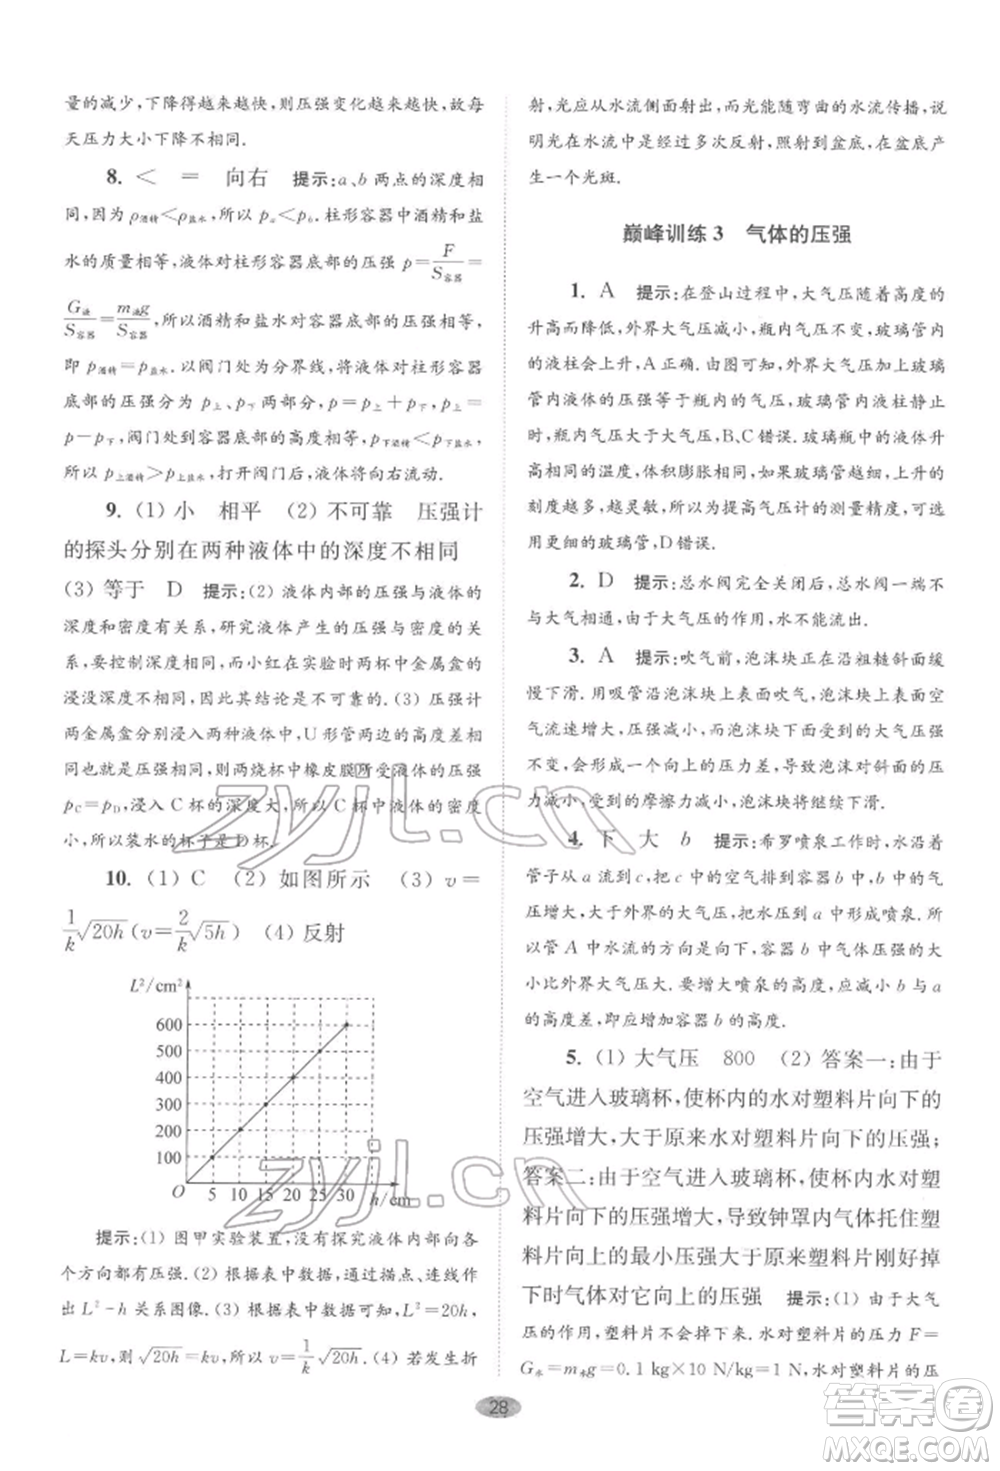 量的减少,下降得越来越快,则压强变化越来越快,故每
天压力大小下降不相同.
8. < = 向右 提示:a、b 两点的深度相
同,因为 ρ酒精<ρ盐水,所以 pa<pb. 柱形容器中酒精和盐
水的质量相等,液体对柱形容器底部的压强 p=F/S容器=
G液/S容器=m液g/S容器,所以酒精和盐水对容器底部的压强相等,
即 p酒精=p盐水. 以阀门处为分界线,将液体对柱形容器
底部的压强分为 p上、p下 两部分,p=p上+p下,p上=
p-p下,阀门处到容器底部的高度相等,p下酒精<p下盐水,
所以 p上酒精>p上盐水,打开阀门后,液体将向右流动.
9. (1) 小 相平 (2) 不可靠 压强计
的探头分别在两种液体中的深度不相同
(3) 等于 D 提示:(2) 液体内部的压强与液体的
深度和密度有关系,研究液体产生的压强与密度的关系,
要控制深度相同,而小红在实验时两杯中金属盒的
浸没深度不相同,因此其结论是不可靠的.(3) 压强计
两金属盒分别浸入两种液体中,U 形管两边的高度差相
同,说明此时,两烧杯中橡皮膜所受液体的压强
pC=pD,浸入 C 杯的深度大,所以 C 杯中液体的密度
小.所以装水的杯子是 D 杯.
10. (1) C (2) 如图所示 (3) v=
1/k√20h(v=2/k√5h) (4) 反射
L²/cm²
600
500
400
300
200
100
O 5 10 15 20 25 30 h/cm
提示:(1) 图甲实验装置,没有探究液体内部向各
个方向都有压强.(2) 根据表中数据,通过描点、连线作
出 L²-h 关系图像.(3) 根据表中数据可知,L²=20h,
L=kv,则√20h=kv,v=1/k√20h.(4) 若发生折
射,光应从水流侧面射出,而光能随弯曲的水流传播,说
明光在水流中多次反射,照射到盆底,在盆底产
生一个光斑.
巅峰训练 3 气体的压强
1. A 提示:在登山过程中,大气压随着高度的
升高而降低,外界大气压减小,瓶内气压不变,玻璃管内
的液柱会上升,A 正确. 由图可知,外界大气压与玻璃
管内液体的压强等于瓶内的气压,玻璃管内液柱静止
时,瓶内气压大于大气压,B、C 错误. 玻璃瓶中的液体升
高相同的温度,体积膨胀相同,如果玻璃管越细,上升的
刻度越多,越灵敏,所以为了提高气压计的测量精度,应
用更细的玻璃管,D 错误.
2. D 提示:总水阀完全关闭后,总水阀一端无法
与大气相通,水龙头由于大气压的作用,水不能流出.
3. A 提示:吹气前,泡沫块在沿粗糙斜面缓
慢下滑. 用吸管沿泡沫块上表面吹气,泡沫块上表面空
气流速增大,压强减小,而泡沫块下面受到的大气压强
不变,会形成一个向上的压力差,导致泡沫块对斜面的
压力减小,所受到的摩擦力减小,泡沫块将继续下滑.
4. 下 大 b 提示:希罗喷泉工作时,水沿着
管子从 a 流到 c,把 c 中的空气排到容器 b 中,使 b 中的
气压增大,大于外界的大气压,水从 b 到达 a 形成喷泉.
所以管 A 中水流的方向是向下,容器 b 中气体压强与
外界大气压相比,气体压强大于大气压大. 要增大喷泉的高度,应减小 b 与 a
的高度差,即应增加容器 b 的高度.
5. (1) 大气压 800 (2) 答案一:由于
空气进入玻璃杯,使杯内的水对塑料片向下的
压强增大,大于原来水对塑料片向下的压强;
答案二:由于空气进入玻璃杯,使杯内水对塑
料片向下的压强增大,导致钟罩内气体托住塑
料片向上的最小压强大于原来塑料片刚好掉
下时气体对它向上的压强 提示:(1) 由于大气
压的作用,塑料片不会掉下来. 水对塑料片的压力 F=
G水=m水g=0.1 kg×10 N/kg=1 N,水对塑料片的压
28
zyjl.cn
zyjl.cn
答案圈
MXQE.COM